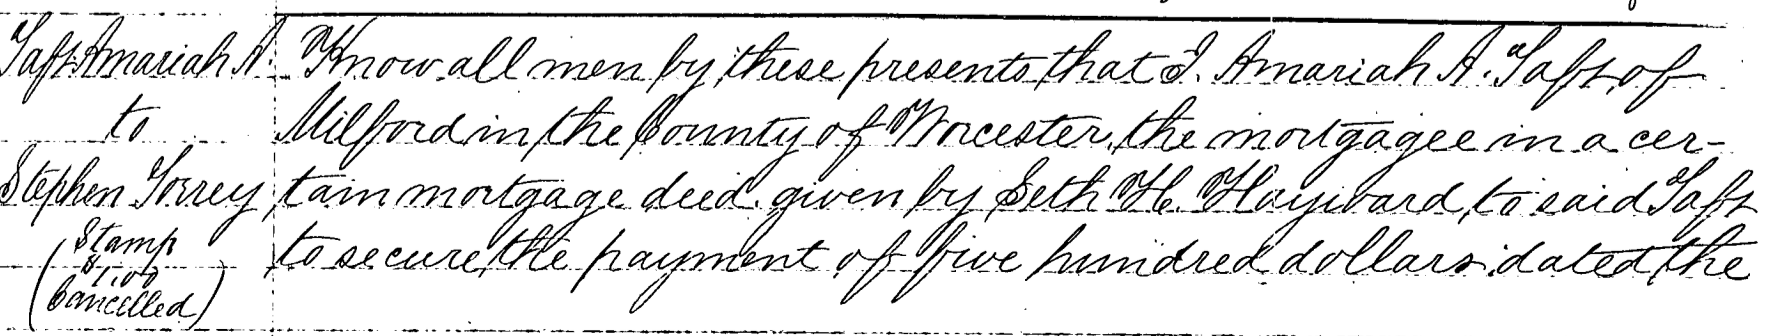 Taft Amariah A.
to
Stephen Torrey
(Stamp
$1.00
Cancelled)
Know all men by these presents, that I. Amariah A. Taft, of
Milford in the County of Worcester, the mortgagee in a cer-
tain mortgage deed given by Seth H. Hayward, to said Taft
to secure the payment of five hundred dollars dated the